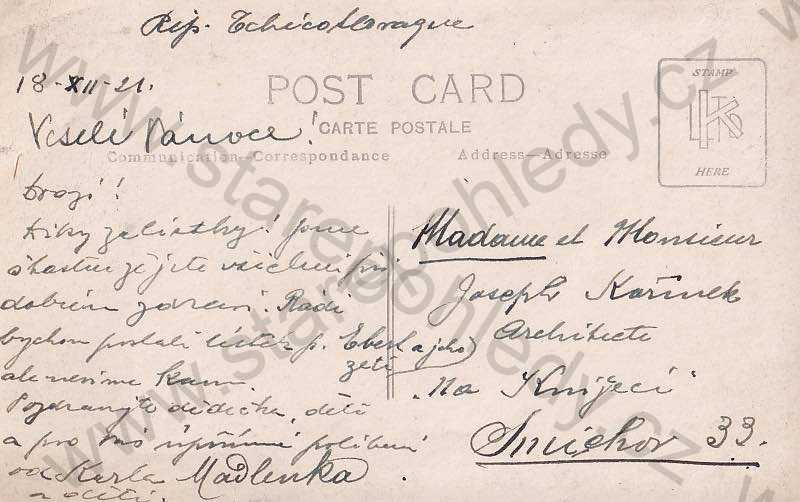 Rép. Tchécoslovaque
18-XII-21.
POST CARD
Veselé Vánoce!
CARTE POSTALE
Communication—Correspondance
Address—Adresse
STAMP
HERE
Drazí!
Díky za lístky! Jsme
šťastni že jste všichni při
dobrém zdraví. Rádi
bychom poslali lístek p.
zeti
ale nevíme kam.
Pozdravujte dědečka, děti
a pro Vás upřímné políbení
od Karla Madlenka
a dětí.
Madame et Monsieur
Joseph Kořínek
Architecte
"Na Knížecí"
Smíchov 33.
www.starepohledy.cz
www.starepohledy.cz